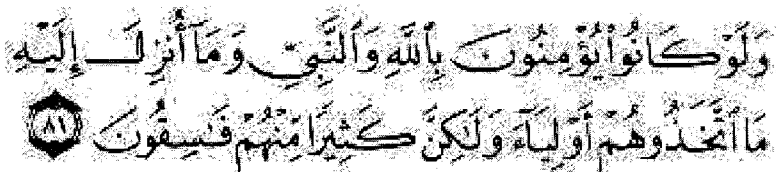 وَلَوْ كَانُوا۟ يُؤْمِنُونَ بِٱللَّهِ وَٱلنَّبِىِّ وَمَآ أُنزِلَ إِلَيْهِ
مَا ٱتَّخَذُوهُمْ أَوْلِيَآءَ وَلَـٰكِنَّ كَثِيرًا مِّنْهُمْ فَـٰسِقُونَ ٨١